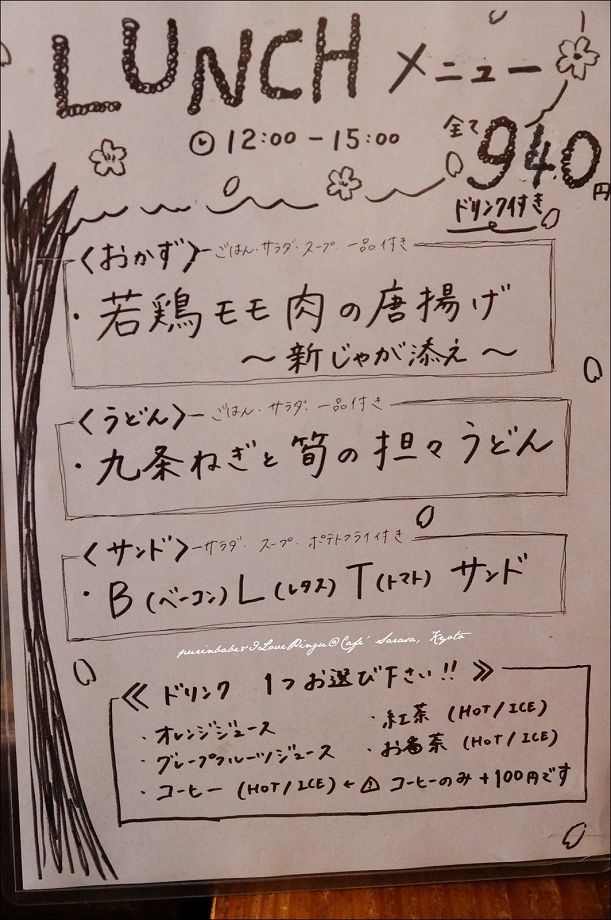 LUNCH メニュー
12:00 - 15:00
全て940円
ドリンク付き
〈おかず〉 ごはん・サラダ・スープ・一品付き
・若鶏モモ肉の唐揚げ
～新じゃが添え～
〈うどん〉 ごはん・サラダ・一品付き
・九条ねぎと筍の担々うどん
〈サンド〉 サラダ・スープ・ポテトフライ付き
・B(ベーコン)L(レタス)T(トマト)サンド
purinbaber & I Love Ringu @ Café Sarasa, Kyoto
《ドリンク 1つお選び下さい!!》
・オレンジジュース
・紅茶 (HOT/ICE)
・グレープフルーツジュース
・お番茶 (HOT/ICE)
・コーヒー (HOT/ICE) ← ⚠ コーヒーのみ +100円です